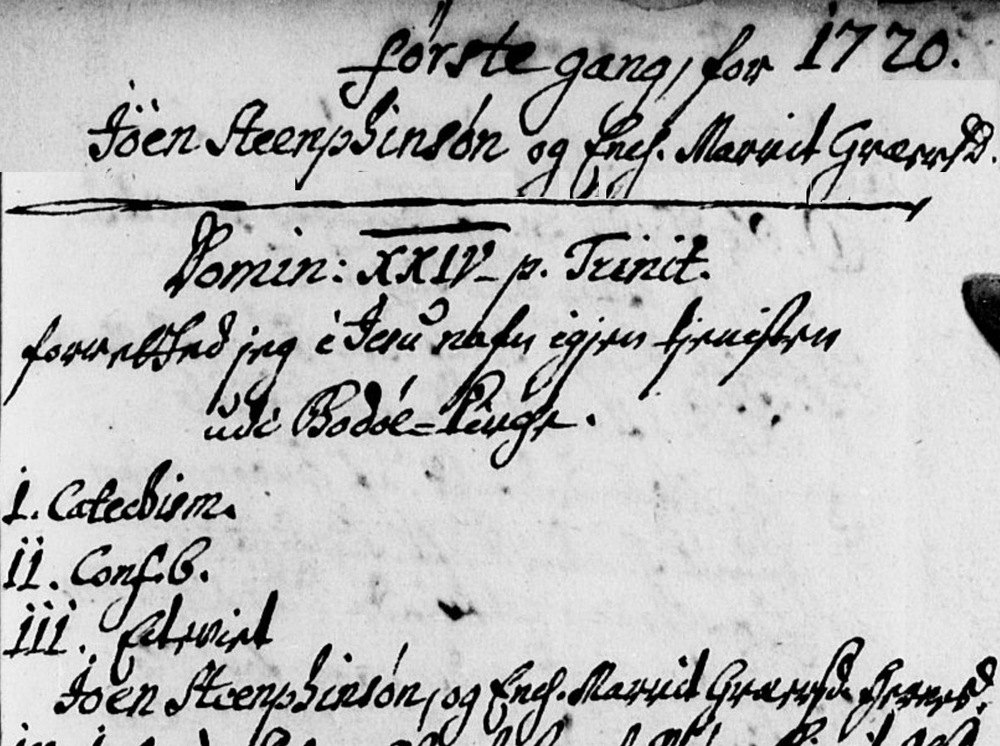 første gang, for 1720.
Jöen Steenphinsón og Ench. Marrit Græersd.
Domin: XXIV p. Trinit.
forretted jeg i Jesu nafn igjen tjenisten
udi Bodóe=kirge.
I. Catechism.
II. Conf. 6.
III. Edtroviet
Joen Steenphinsón, og Ench. Marrit Græersd.